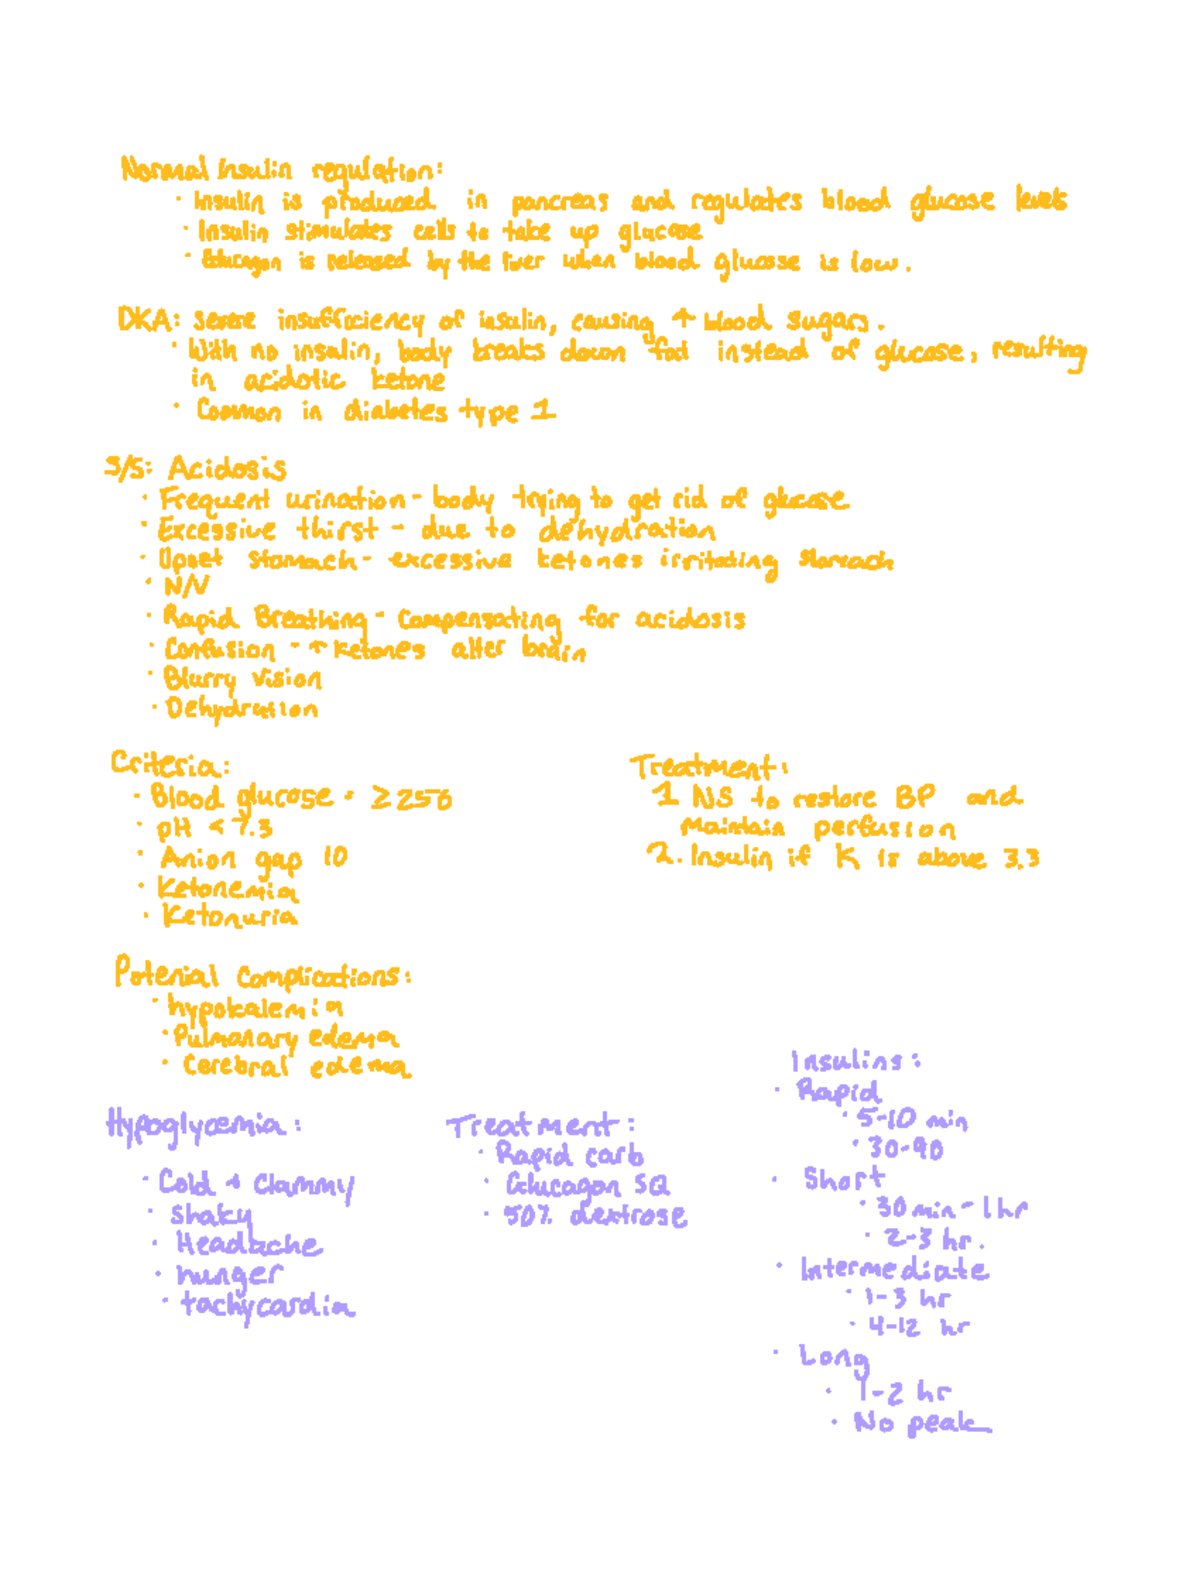 Normal Insulin regulation:
· Insulin is produced in pancreas and regulates blood glucose levels
· Insulin stimulates cells to take up glucose
· Glucagon is released by the liver when blood glucose is low.
DKA: severe insufficiency of insulin, causing ↑ blood sugars.
· With no insulin, body breaks down fat instead of glucose, resulting
in acidotic ketone
· Common in diabetes type 1
S/S: Acidosis
· Frequent urination - body trying to get rid of glucose
· Excessive thirst - due to dehydration
· Upset stomach - excessive ketones irritating stomach
· N/V
· Rapid Breathing - Compensating for acidosis
· Confusion - ↑ ketones alter brain
· Blurry vision
· Dehydration
Criteria:
· Blood glucose · ≥250
· pH < 7.3
· Anion gap 10
· Ketonemia
· Ketonuria
Treatment:
1 NS to restore BP and
Maintain perfusion
2. Insulin if K is above 3.3
Potenial Complications:
· hypokalemia
· Pulmonary edema
· Cerebral edema
Hypoglycemia:
· Cold + Clammy
· Shaky
· Headache
· hunger
· tachycardia
Treatment:
· Rapid carb
· Glucagon SQ
· 50% dextrose
Insulins:
· Rapid
· 5-10 min
· 30-90
· Short
· 30 min - 1hr
· 2-3 hr.
· Intermediate
· 1-3 hr
· 4-12 hr
· Long
· 1-2 hr
· No peak